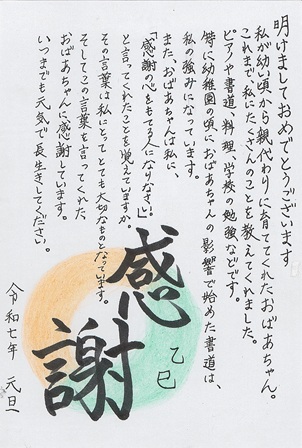 明けましておめでとうございます
私が幼い頃から親代わりに育ててくれたおばあちゃん。
これまで、私にたくさんのことを教えてくれました。
ピアノや書道、料理、学校の勉強などです。
特に幼稚園の頃におばあちゃんの影響で始めた書道は、
私の強みになっています。
また、おばあちゃんは私に、
「感謝の心をもてる人になりなさい」
と言ってくれたことを覚えていますか。
その言葉は私にとってとても大切なものとなっています。
そしてこの言葉を言ってくれた
おばあちゃんに感謝しています。
いつまでも元気で長生きしてください。
感謝
乙巳
令和七年 元旦